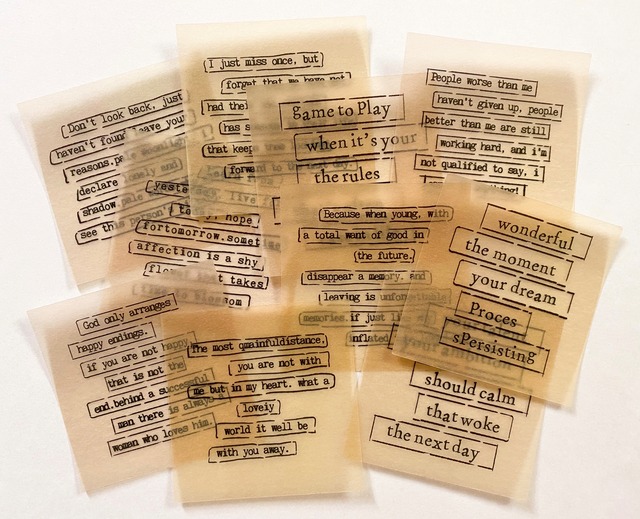 Don't look back, just
haven't found leave you
reasons.
declare lonely end
shadow.
see this person
I just miss once, but
forget that we have not
had the
has s
that keep
forward
game to Play
when it's your
the rules
People worse than me
haven't given up, people
better than me are still
working hard, and i'm
not qualified to say, i
yeste
hope
fortomorrow.somet
affection is a shy
that takes
time to blossom
Because when young, with
a total want of good in
the future.
disappear a memory. and
leaving is unforgettable
memories.if just like
inflated
wonderful
the moment
your dream
Proces
sPersisting
your ambition
should calm
that woke
the next day
God only arranges
happy endings.
if you are not happy,
that is not the
end.behind a successful
man there is always a
woman who loves him.
The most qmainfuldistance,
you are not with
me but in my heart. what a
lovely
world it well be
with you away.